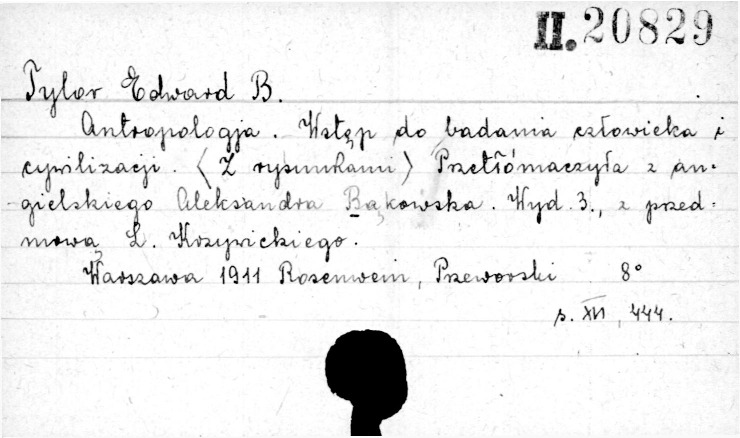 II. 20829
Tylor Edward B.
Antropologja. Wstęp do badania człowieka i
cywilizacji. (Z rysunkami) Przetłómaczyła z an-
gielskiego Aleksandra Bąkowska. Wyd. 3., z przed-
mową L. Krzywickiego.
Warszawa 1911 Rosenwein, Przeworski 8°
s. XVI, 444.